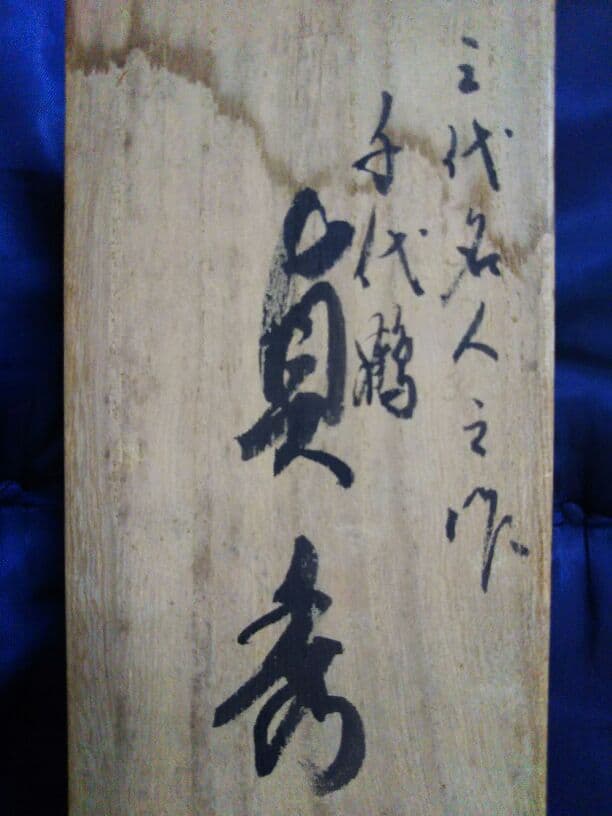 三代名人之作
千代鶴
貞秀